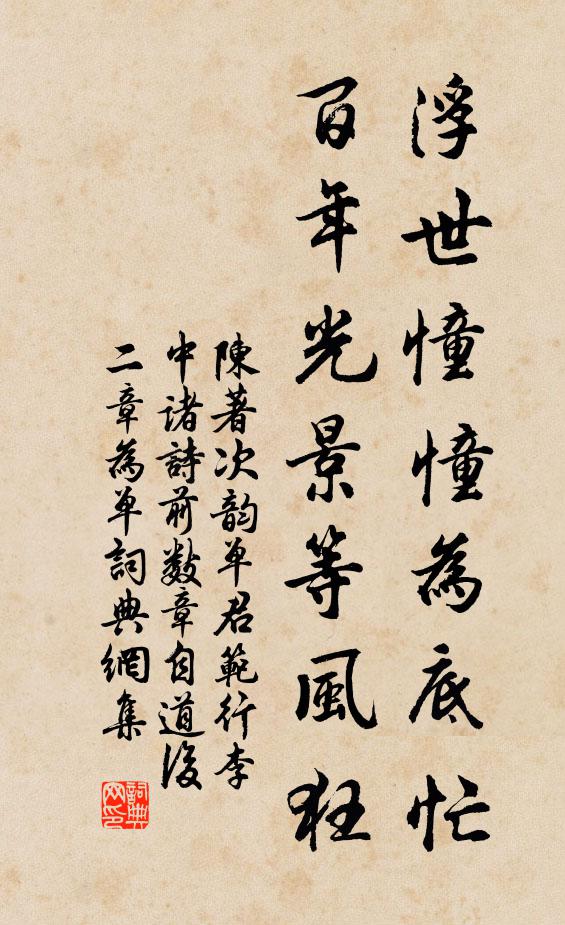 浮世憧憧為底忙
百年光景等風狂
陳著次韵单君範行李
中诸詩前數章自道後
二章為单詞典網集
詞典
网印